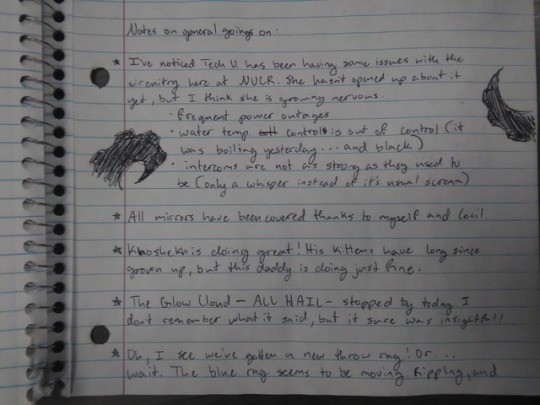 Notes on general goings on:
* I've noticed Tech U. has been having some issues with the
circuitry here at NVCR. She hasn't opened up about it
yet, but I think she is growing nervous.
· frequent power outages
· water temp. control is out of control (it
was boiling yesterday... and black)
· intercoms are not as strong as they used to
be (only a whisper instead of it's usual scream)
* All mirrors have been covered thanks to myself and Cecil
* Khoshekh is doing great! His kittens have long since
grown up, but this daddy is doing just fine.
* The Glow Cloud - ALL HAIL - stopped by today. I
dont remember what it said, but it sure was insightful!
* Oh, I see we've gotten a new throw rug! Or...
wait. The blue rug seems to be moving. Rippling, and